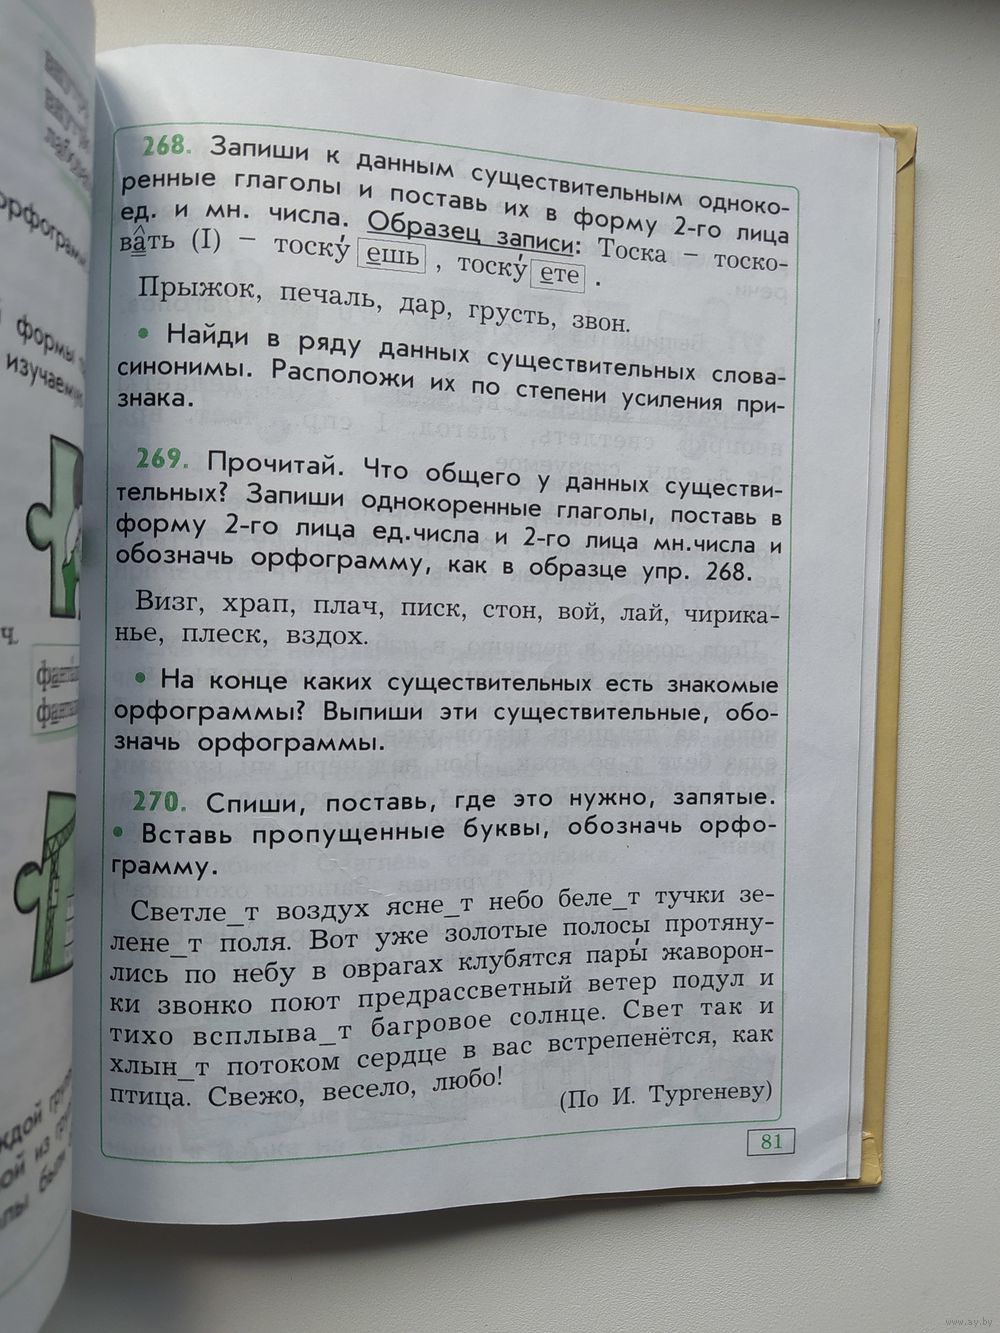 268. Запиши к данным существительным одноко-
ренные глаголы и поставь их в форму 2-го лица
ед. и мн. числа. Образец записи: Тоска – тоско-
вать (I) – тоску́ ешь , тоску́ ете .
Прыжок, печаль, дар, грусть, звон.
• Найди в ряду данных существительных слова-
синонимы. Расположи их по степени усиления при-
знака.
269. Прочитай. Что общего у данных существи-
тельных? Запиши однокоренные глаголы, поставь в
форму 2-го лица ед.числа и 2-го лица мн.числа и
обозначь орфограмму, как в образце упр. 268.
Визг, храп, плач, писк, стон, вой, лай, чирика-
нье, плеск, вздох.
• На конце каких существительных есть знакомые
орфограммы? Выпиши эти существительные, обо-
значь орфограммы.
270. Спиши, поставь, где это нужно, запятые.
• Вставь пропущенные буквы, обозначь орфо-
грамму.
Светле_т воздух ясне_т небо беле_т тучки зе-
лене_т поля. Вот уже золотые полосы протяну-
лись по небу в оврагах клубятся пары́ жаворон-
ки звонко поют предрассветный ветер подул и
тихо всплыва_т багровое солнце. Свет так и
хлын_т потоком сердце в вас встрепенётся, как
птица. Свежо, весело, любо!
(По И. Тургеневу)
81
www.ay.by